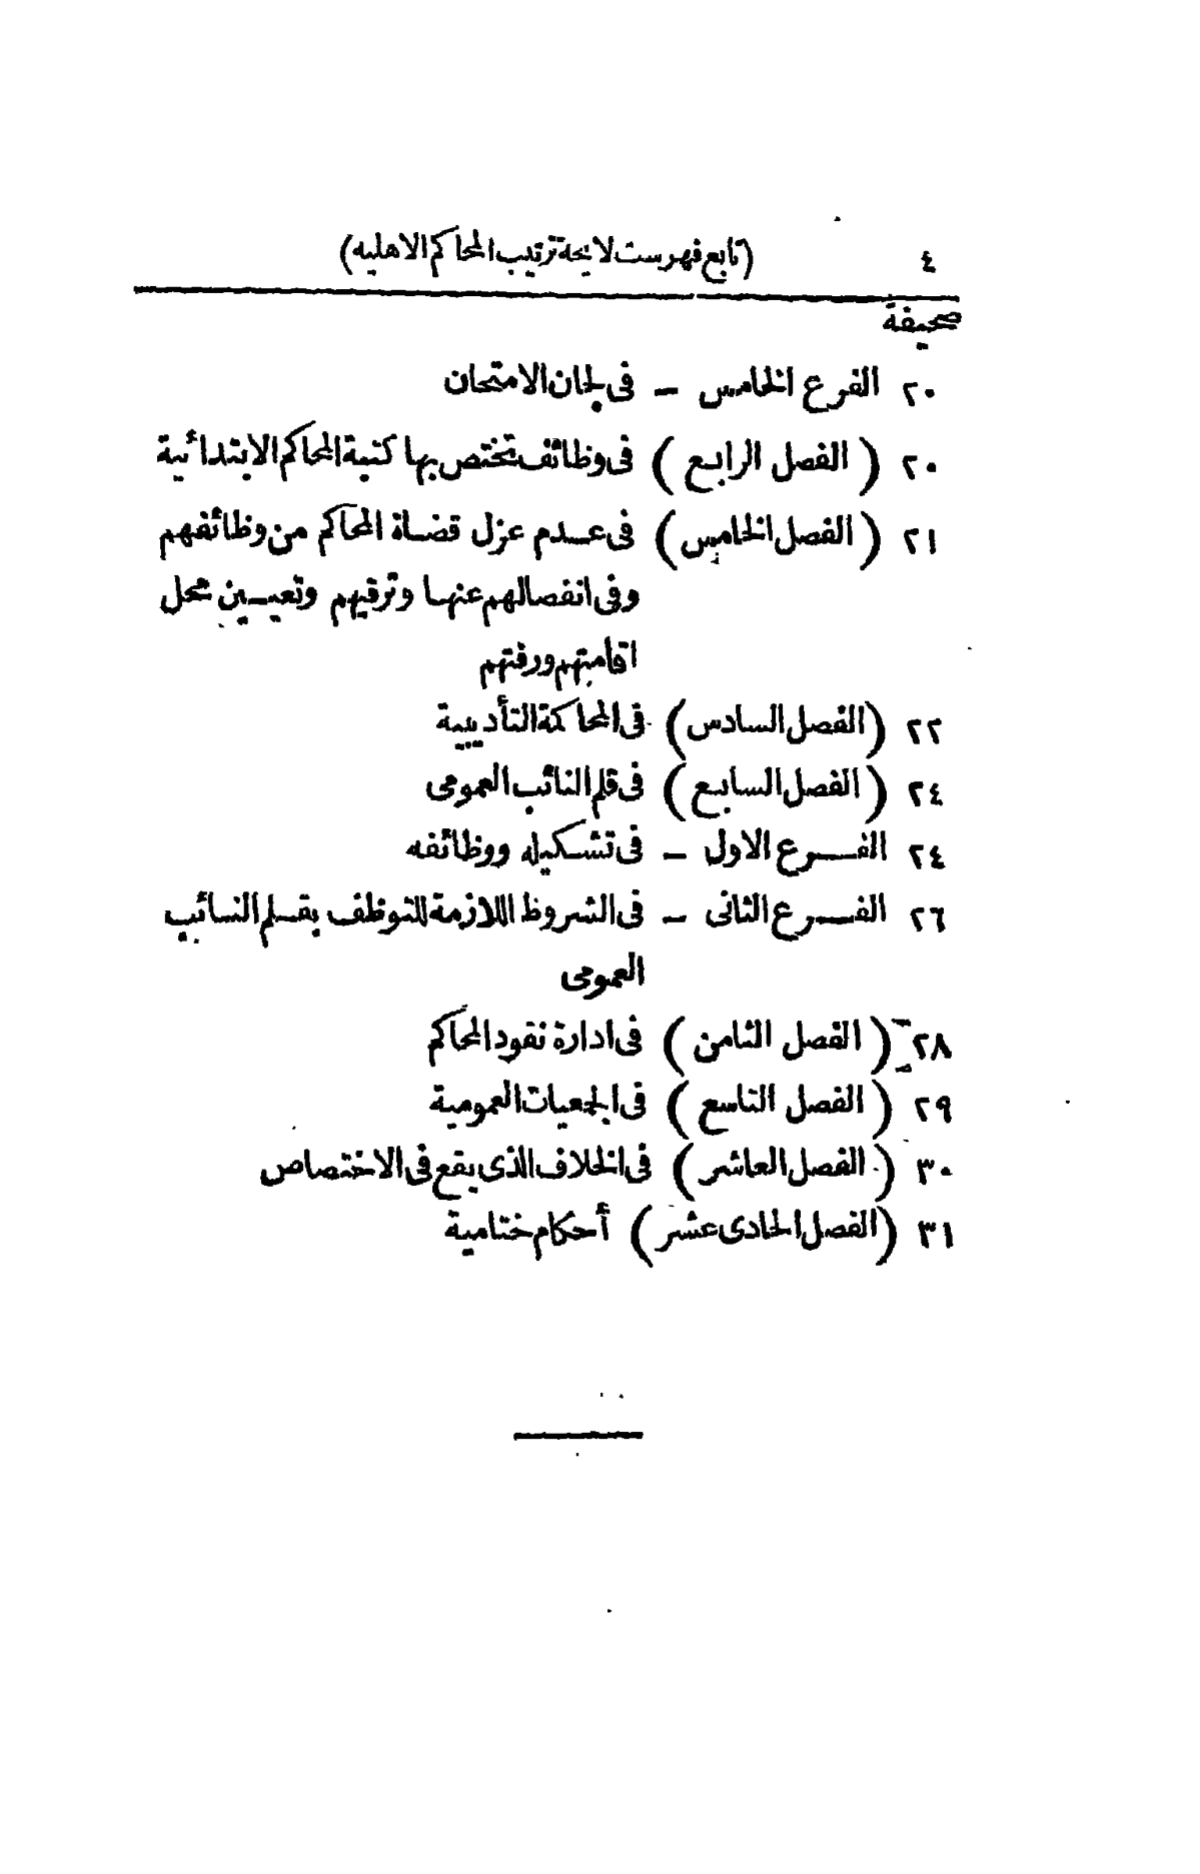 ٤ (تابع فهرست لايحة ترتيب المحاكم الاهليه)
صحيفة
٢٠ الفرع الخامس – فى لجان الامتحان
٢٠ (الفصل الرابع) فى وظائف تختص بها كتبة المحاكم الابتدائية
٢١ (الفصل الخامس) فى عدم عزل قضاة المحاكم من وظائفهم
وفى انفصالهم عنها وترقيهم وتعيين محل
اقامتهم ورفتهم
٢٢ (الفصل السادس) فى المحاكمة التأديبية
٢٤ (الفصل السابع) فى قلم النائب العمومى
٢٤ الفرع الاول – فى تشكيله ووظائفه
٢٦ الفرع الثانى – فى الشروط اللازمة للتوظف بقلم النائب
العمومى
٢٨ (الفصل الثامن) فى ادارة نقود المحاكم
٢٩ (الفصل التاسع) فى الجمعيات العمومية
٣٠ (الفصل العاشر) فى الخلاف الذى يقع فى الاختصاص
٣١ (الفصل الحادى عشر) أحكام ختامية